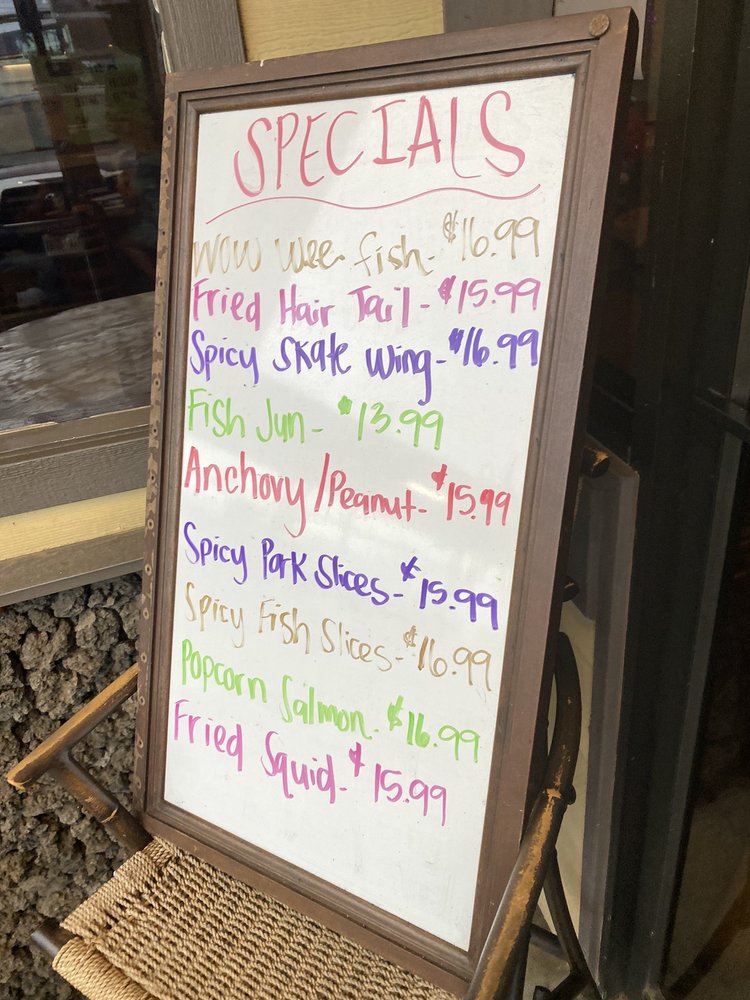 SPECIALS
Wow Wee fish - $16.99
Fried Hair Tail - $15.99
Spicy Skate Wing - $16.99
Fish Jun - $13.99
Anchovy/Peanut - $15.99
Spicy Pork Slices - $15.99
Spicy Fish Slices - $16.99
Popcorn Salmon - $16.99
Fried Squid - $15.99